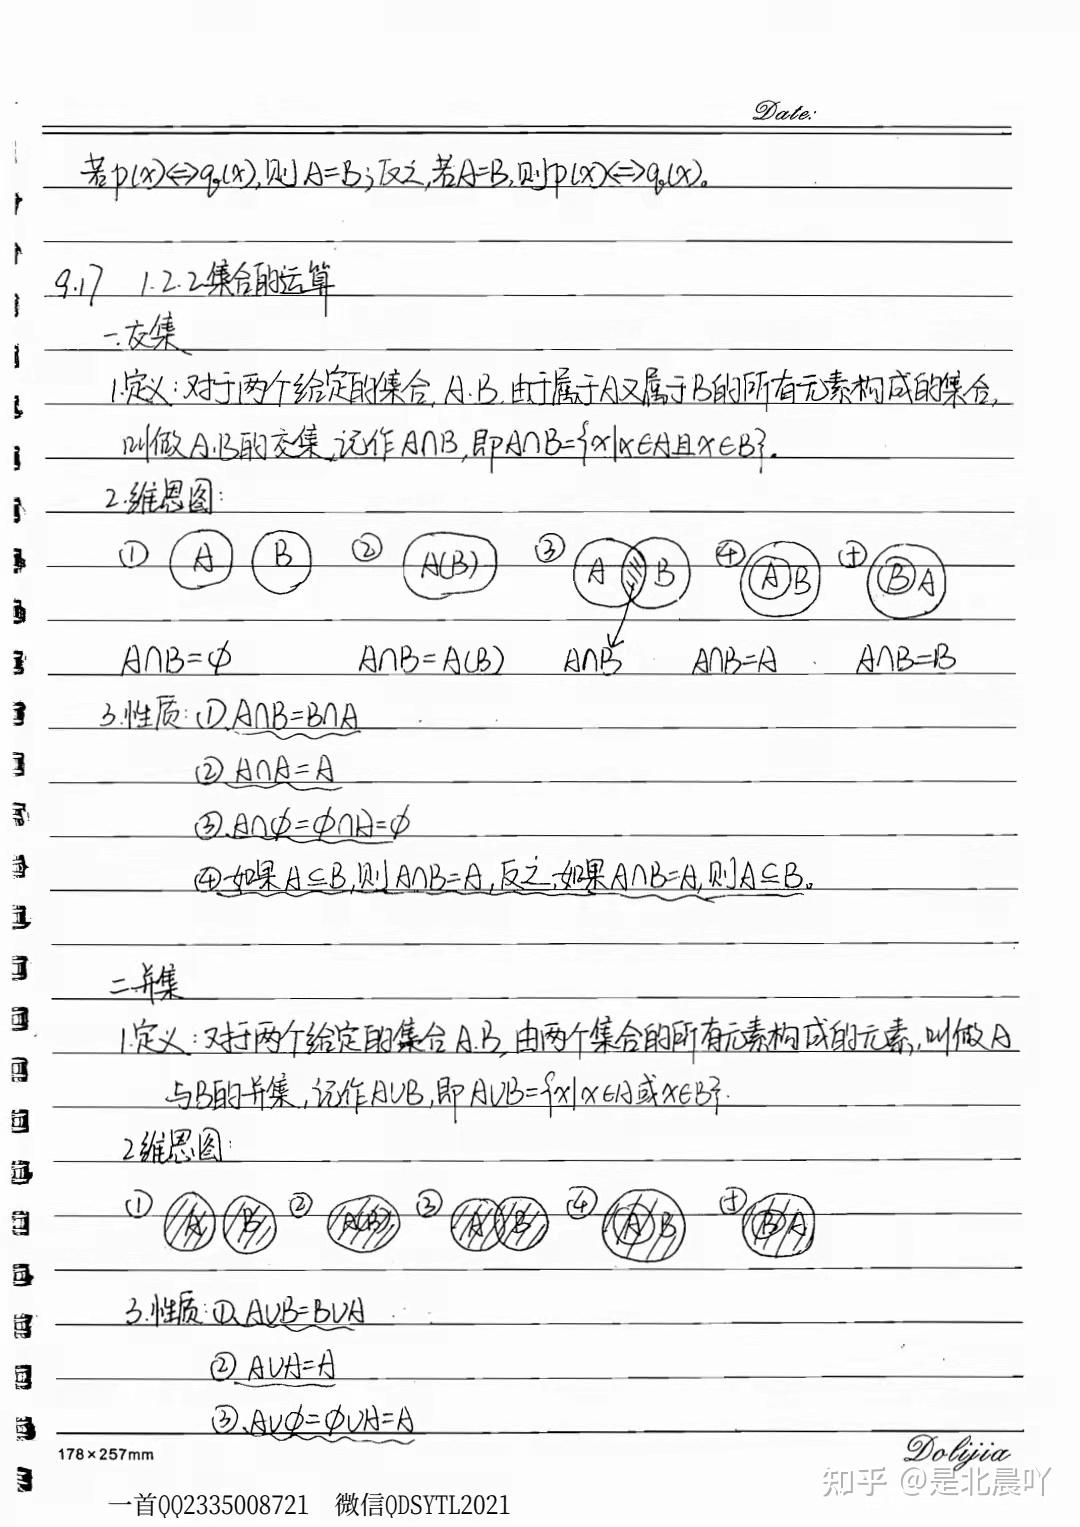 Date:
若p(x)⇔q(x),则A=B;反之,若A=B,则p(x)⇔q(x)。
9.17 1.2.2集合的运算
一.交集
1.定义:对于两个给定的集合,A.B.由于属于A又属于B的所有元素构成的集合,
叫做A.B的交集,记作A∩B,即A∩B={x|x∈A且x∈B}.
2.维恩图:
① A B ② A(B) ③ A B ④ A B ⑤ B A
A∩B=∅ A∩B=A(B) A∩B A∩B=A A∩B=B
3.性质:①.A∩B=B∩A
② A∩A=A
③.A∩∅=∅∩A=∅
④如果A⊆B,则A∩B=A,反之,如果A∩B=A,则A⊆B。
二.并集
1.定义:对于两个给定的集合A.B,由两个集合的所有元素构成的元素,叫做A
与B的并集,记作A∪B,即A∪B={x|x∈A或x∈B}.
2维恩图:
① A B ② A(B) ③ A B ④ A B ⑤ B A
3.性质:①.A∪B=B∪A
② A∪A=A
③.A∪∅=∅∪A=A
178×257mm Dolijia
知乎 @是北晨吖
一首QQ2335008721 微信QDSYTL2021